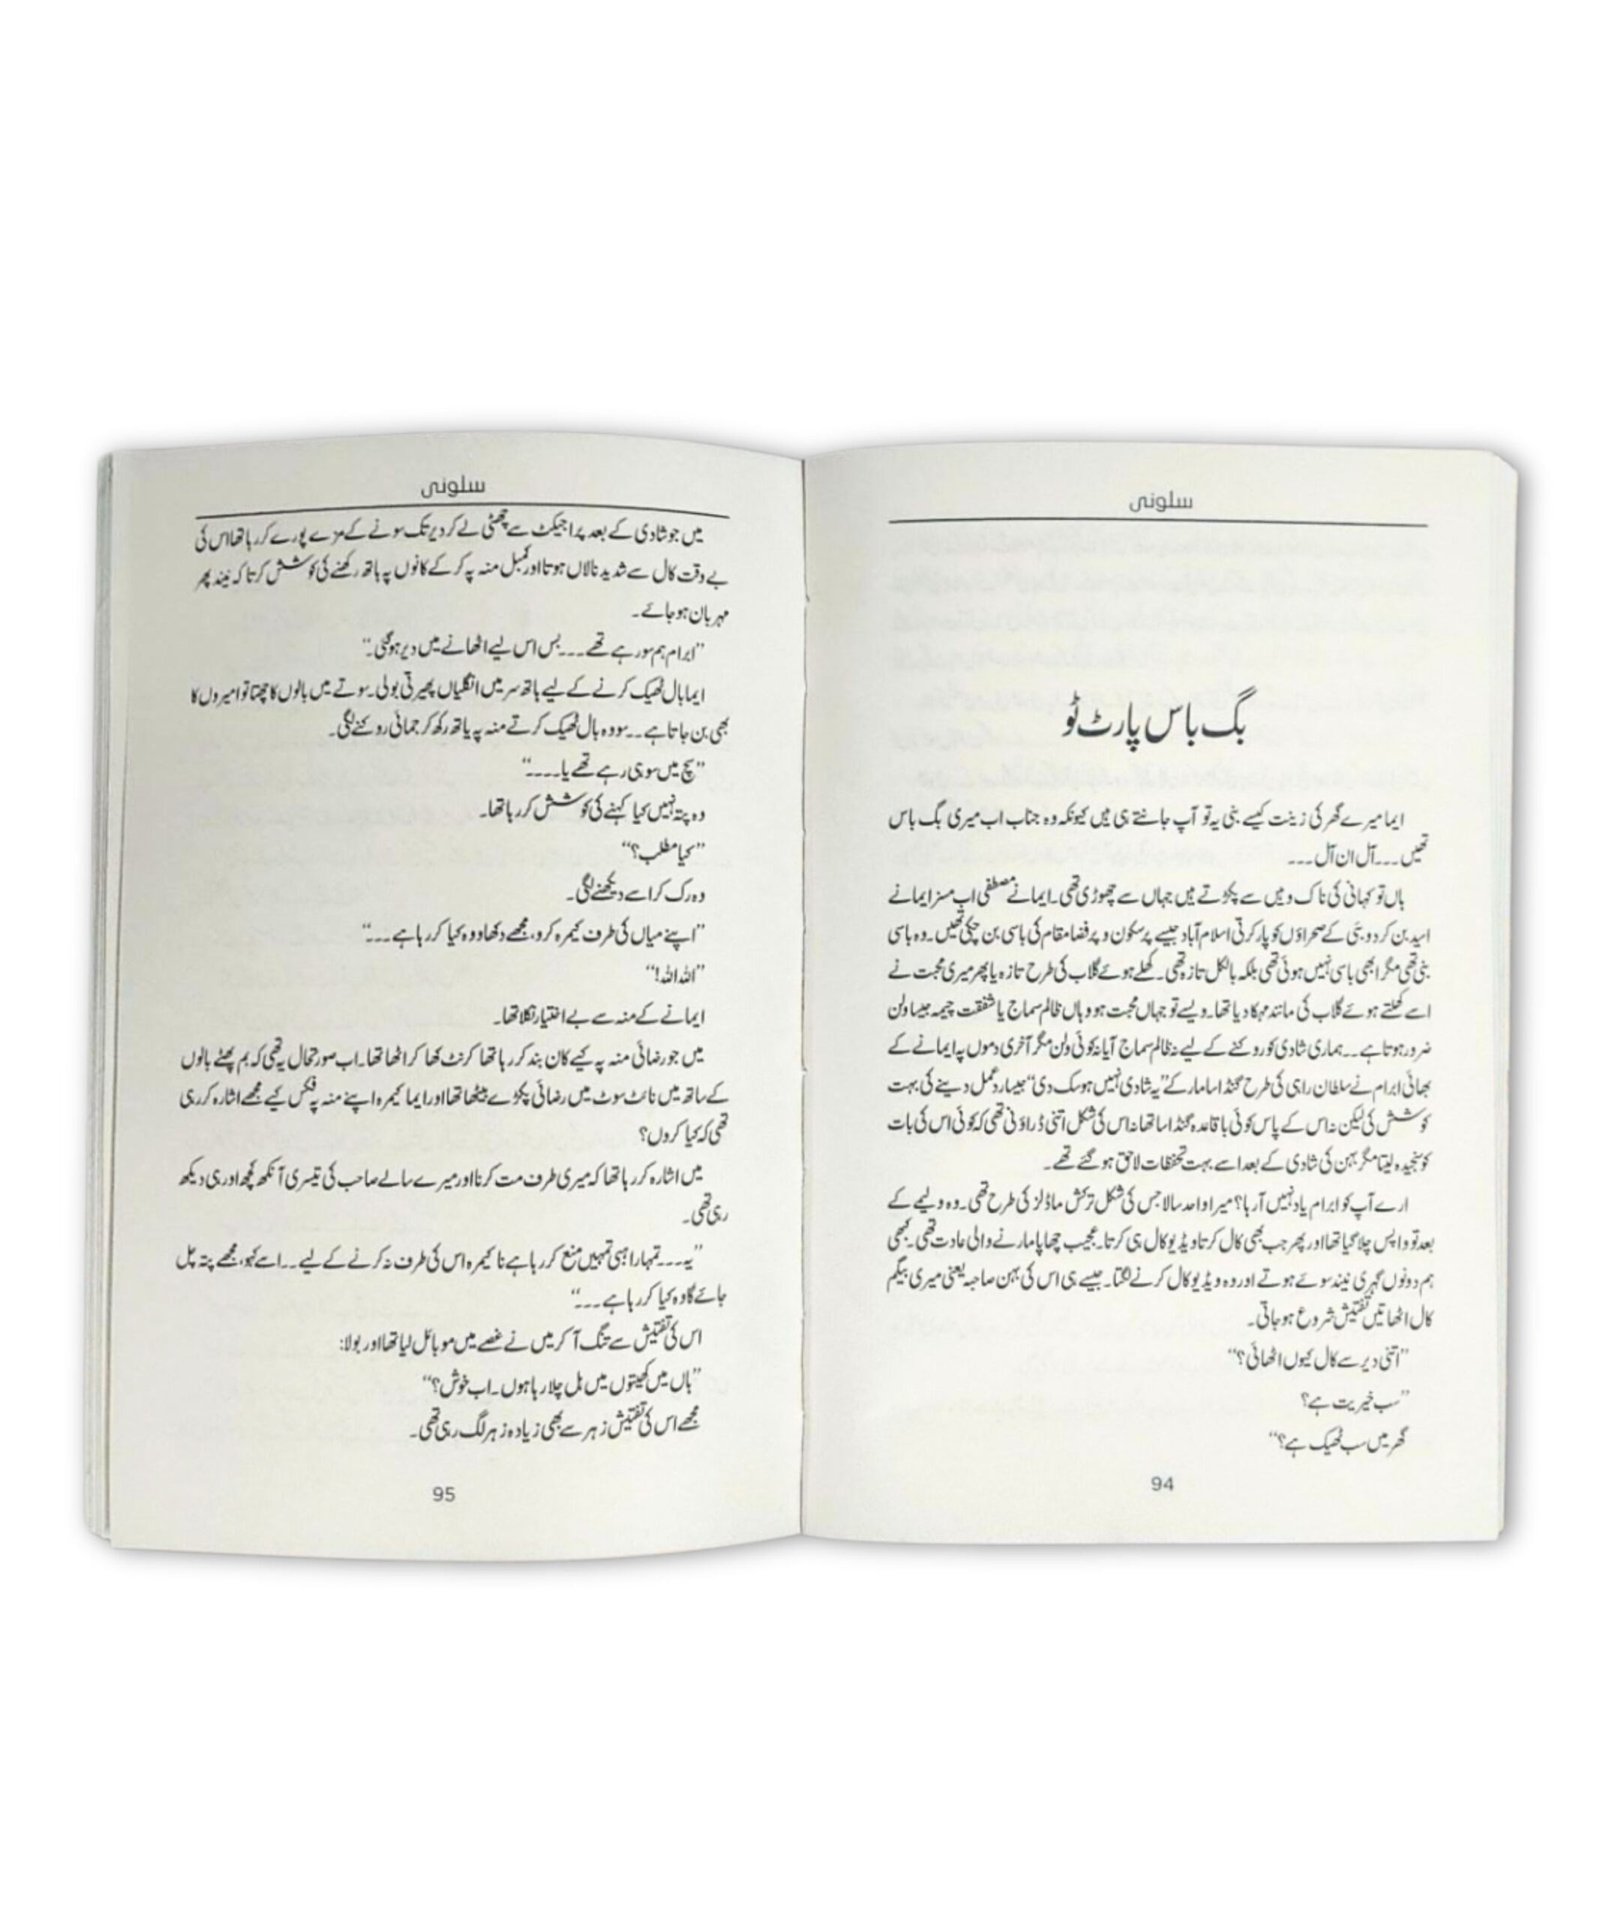 سلونی
بگ باس پارٹ ٹو
ایما میرے گھر کی زینت کیسے بنی یہ تو آپ جانتے ہی ہیں کیونکہ وہ جناب اب میری بگ باس
تھیں ۔۔۔ آل ان آل ۔۔۔
ہاں تو کہانی کی ناک وہیں سے پکڑتے ہیں جہاں سے چھوڑی تھی۔ ایمانے مصطفی اب مسز ایمانے
اسید بن کر دوبئی کے صحراؤں کو پار کرتی اسلام آباد جیسے پر سکون و پر فضا مقام کی باسی بن چکی تھیں۔ وہ باسی
بنی تھی مگر ابھی باسی نہیں ہوئی تھی بلکہ بالکل تازہ تھی۔ کھلے ہوئے گلاب کی طرح تازہ یا پھر میری محبت نے
اسے کھلتے ہوئے گلاب کی مانند مہکا دیا تھا۔ ویسے تو جہاں محبت ہو وہاں ظالم سماج یا شفقت چیمہ جیسا ولن
ضرور ہوتا ہے ۔۔ ہماری شادی کو روکنے کے لیے نہ ظالم سماج آیا نہ کوئی ولن مگر آخری دموں پہ ایمانے کے
بھائی ابرام نے سلطان راہی کی طرح گنڈاسا مار کے "یہ شادی نہیں ہو سک دی" جیسا ردعمل دینے کی بہت
کوشش کی لیکن نہ اس کے پاس کوئی باقاعدہ گنڈاسا تھا نہ اس کی شکل اتنی ڈراؤنی تھی کہ کوئی اس کی بات
کو سنجیدہ لیتا مگر بہن کی شادی کے بعد اسے بہت تحفظات لاحق ہو گئے تھے۔
ارے آپ کو ابرام یاد نہیں آ رہا؟ میرا واحد سالا جس کی شکل ترکش ماڈلز کی طرح تھی۔ وہ ولیمے کے
بعد تو واپس چلا گیا تھا اور پھر جب بھی کال کرتا ویڈیو کال ہی کرتا۔ عجیب چھاپا مارنے والی عادت تھی۔ کبھی
ہم دونوں گہری نیند سوئے ہوتے اور وہ ویڈیو کال کرنے لگتا۔ جیسے ہی اس کی بہن صاحبہ یعنی میری بیگم
کال اٹھاتیں تفتیش شروع ہو جاتی۔
"اتنی دیر سے کال کیوں اٹھائی؟"
"سب خیریت ہے؟
گھر میں سب ٹھیک ہے؟"
94
سلونی
میں جو شادی کے بعد پراجیکٹ سے چھٹی لے کر دیر تک سونے کے مزے پورے کر رہا تھا اس کی
بے وقت کال سے شدید نالاں ہوتا اور کمبل منہ پہ کر کے کانوں پہ ہاتھ رکھنے کی کوشش کرتا کہ نیند پھر
مہربان ہو جائے۔
"ابرام ہم سو رہے تھے ۔۔۔ بس اس لیے اٹھانے میں دیر ہو گئی۔"
ایما بال ٹھیک کرنے کے لیے ہاتھ سر میں انگلیاں پھیرتی بولی۔ سوتے میں بالوں کا چھتا تو امیروں کا
بھی بن جاتا ہے ۔۔ سو وہ بال ٹھیک کرتے منہ پہ ہاتھ رکھ کر جمائی روکنے لگی۔
"سچ میں سو ہی رہے تھے یا ۔۔۔۔"
وہ پتہ نہیں کیا کہنے کی کوشش کر رہا تھا۔
"کیا مطلب؟"
وہ رک کر اسے دیکھنے لگی۔
"اپنے میاں کی طرف کیمرہ کرو، مجھے دکھاؤ وہ کیا کر رہا ہے ۔۔۔"
"اللہ اللہ!"
ایمانے کے منہ سے بے اختیار نکلا تھا۔
میں جو رضائی منہ پہ کیے کان بند کر رہا تھا کرنٹ کھا کر اٹھا تھا۔ اب صورتحال یہ تھی کہ بم پھٹے بالوں
کے ساتھ میں نائٹ سوٹ میں رضائی پکڑے بیٹھا تھا اور ایما کیمرہ اپنے منہ پہ فکس کیے مجھے اشارہ کر رہی
تھی کہ کیا کروں؟
میں اشارہ کر رہا تھا کہ میری طرف مت کرنا اور میرے سالے صاحب کی تیسری آنکھ کچھ اور ہی دیکھ
رہی تھی۔
"یہ ۔۔۔ تمہارا ہبی تمہیں منع کر رہا ہے نا کیمرہ اس کی طرف نہ کرنے کے لیے ۔۔ اسے کہو، مجھے پتہ چل
جائے گا وہ کیا کر رہا ہے ۔۔۔"
اس کی تفتیش سے تنگ آ کر میں نے غصے میں موبائل لیا تھا اور بولا:
"ہاں میں کھیتوں میں ہل چلا رہا ہوں۔ اب خوش؟"
مجھے اس کی تفتیش زہر سے بھی زیادہ زہر لگ رہی تھی۔
95